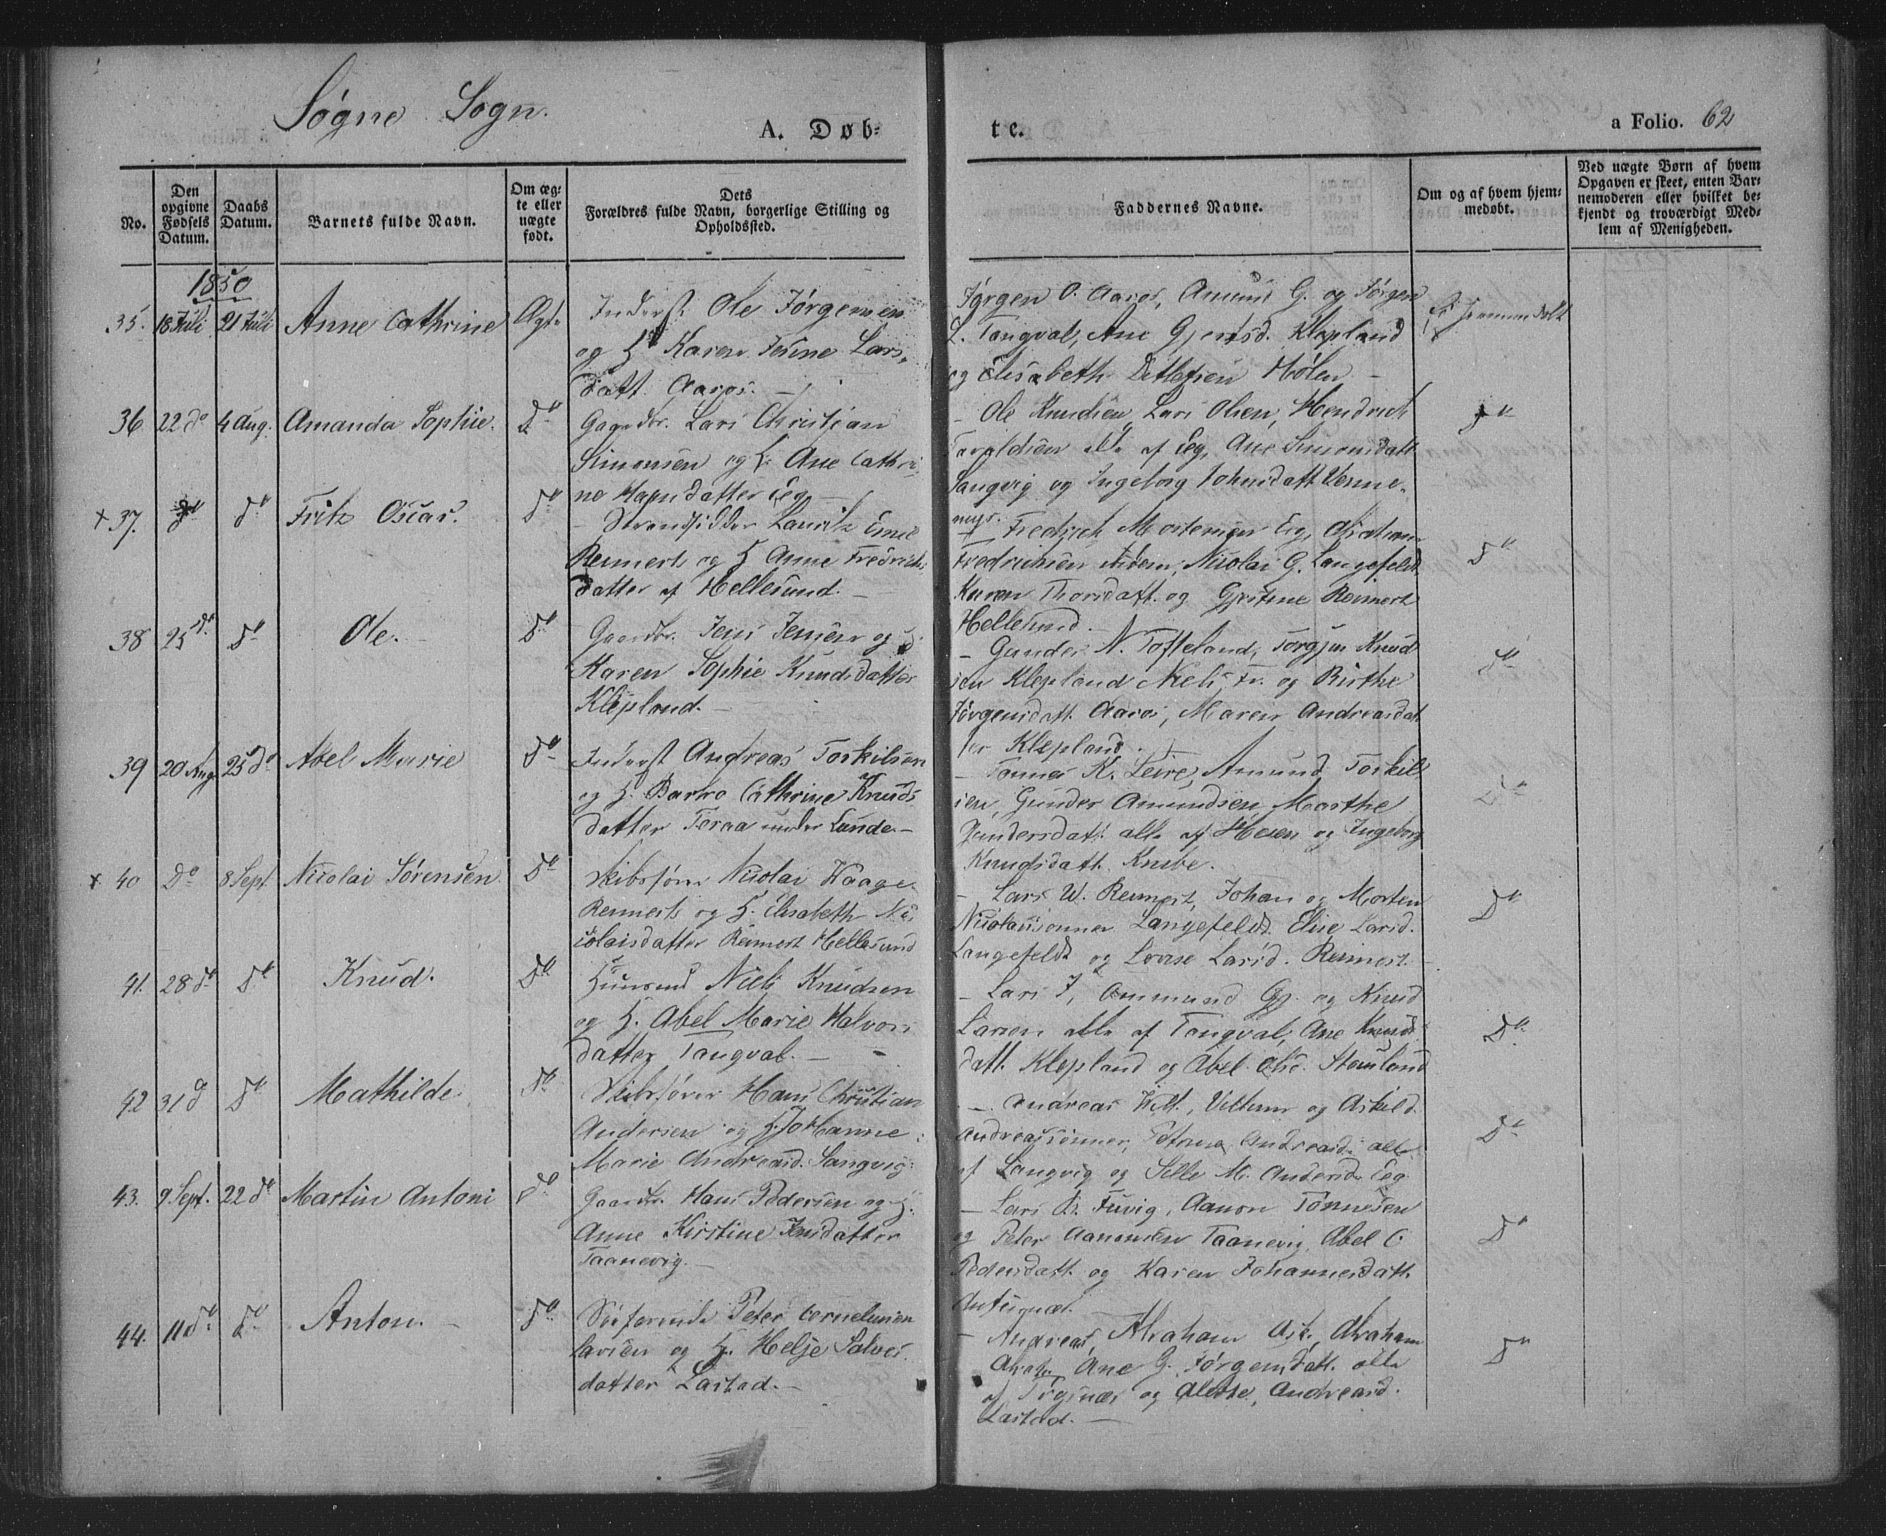 Søgne Sogn.
A. Døb-
te.
a Folio. 62
No.
Den opgivne Fødsels Datum.
Daabs Datum.
Barnets fulde Navn.
Om æg- te eller uægte født.
Dets Forældres fulde Navn, borgerlige Stilling og Opholdssted.
Faddernes Navne.
Om og af hvem hjem- medøbt.
Ved uægte Børn af hvem Opgaven er skeet, enten Bar- nemoderen eller hvilket be- kjendt og troværdigt Med- lem af Menigheden.
1850
35. 18 Juli 21 Juli Anne Cathrine Ægte
Inderst Ole Jørgensen
og H. Karen Serine Lars-
datt. Aaros. —
Jørgen O. Aaros, Amund G. og Jørgen
L. Tangval, Ane Gjertsd. Klepland
og Elisabeth Detlefsen Hølen —
Ei hjemmedøbt
36 22 do 4 Aug. Amanda Sophie. Do
Gaardbr. Lars Christian
Simonsen og H. Ane Cathri-
ne Hansdatter Eg —
— Ole Knudsen, Lars Olsen, Hendrich
Taraldsen alle af Eg, Ane Simonsdatt.
Langvig og Ingeborg Johnsdatt. Venne-
næs.
Do
x 37. do do Fritz Oscar. Do
Strandsidder Lauritz Emil
Reimert og H. Anne Fredrichs-
datter af Hellesund. —
— Fredrich Mortensen Eg, Abraham
Fredrichsen ibidem, Nicolai G. Langefeldt,
Karen Thorsdatt. og Gjertine Reimert
Hellesund. —
Do
38 25 do. do Ole. Do
Gaardbr. Jens Jensen og H.
Karen Sophie Knudsdatter
Klepland. —
— Gunder N. Tofteland, Torgjus Knud-
sen Klepland Niels Tr. og Birthe
Jørgensdatt. Aaros, Maren Andreasdat-
ter Klepland.
do
39 20 Aug 25 do Abel Marie Do
Inderst Andreas Torkilsen
og H. Barbro Cathrine Knuds-
datter Toraa under Lunde —
— Tønnes K. Leire, Amund Torkil-
sen, Gunder Amundsen, Marthe
Gundersdatt. alle af Høien og Ingeborg
Knudsdatt. Knibe.
Do
x 40 Do 8 Sept. Nicolai Sørensen Do
Skibsfører Nicolai Waage
Reimert og H. Elisabeth Ni-
colaisdatter Reimert Hellesund
— Lars W. Reimert, Johan og Morten
Nicolaisønner Langefeldt, Elise Larsd.
Langefeldt og Lovise Larsd. Reimert. —
Do
41. 28 do Do Knud. Do
Huusmd Niels Knudsen
og H. Abel Marie Halvors-
datter Tangval. —
— Lars J., Ammund Gj. og Knud
Larsen alle af Tangval, Ane Knuds-
datt. Klepland og Abel Olsd. Stouland
Do
42 31 d Do Mathilde Do
Skibsfører Hans Christian
Andersen og H. Johanne
Marie Andreasd. Langvig.
— Andreas Wilh., Vilhum og Askild
Andreassønner, Petrine Andreasd. alle
af Langvig og Sille M. Andersd. Eg
Do
43. 9 Sept. 22 do Martin Antoni Do
Gaardbr. Hans Pedersen og H.
Anne Kirstine Jensdatter
Taanevig. —
— Lars B. Tuvig, Aanon Tønnesen
og Peter Aanonsen Taanevig, Abel C.
Pedersdatt. og Karen Johannesdatt.
Do
44. 11 do Do Anton. — Do
Søefarende Peter Cornelius
Larsen og H. Helje Salves-
datter Lastad. —
— Andreas, Abraham Ask., Abraham
Abrah., Ane G. Jørgensdatt. alle
af Føgsnæs og Alette Andreasd.
Lastad. —
Do